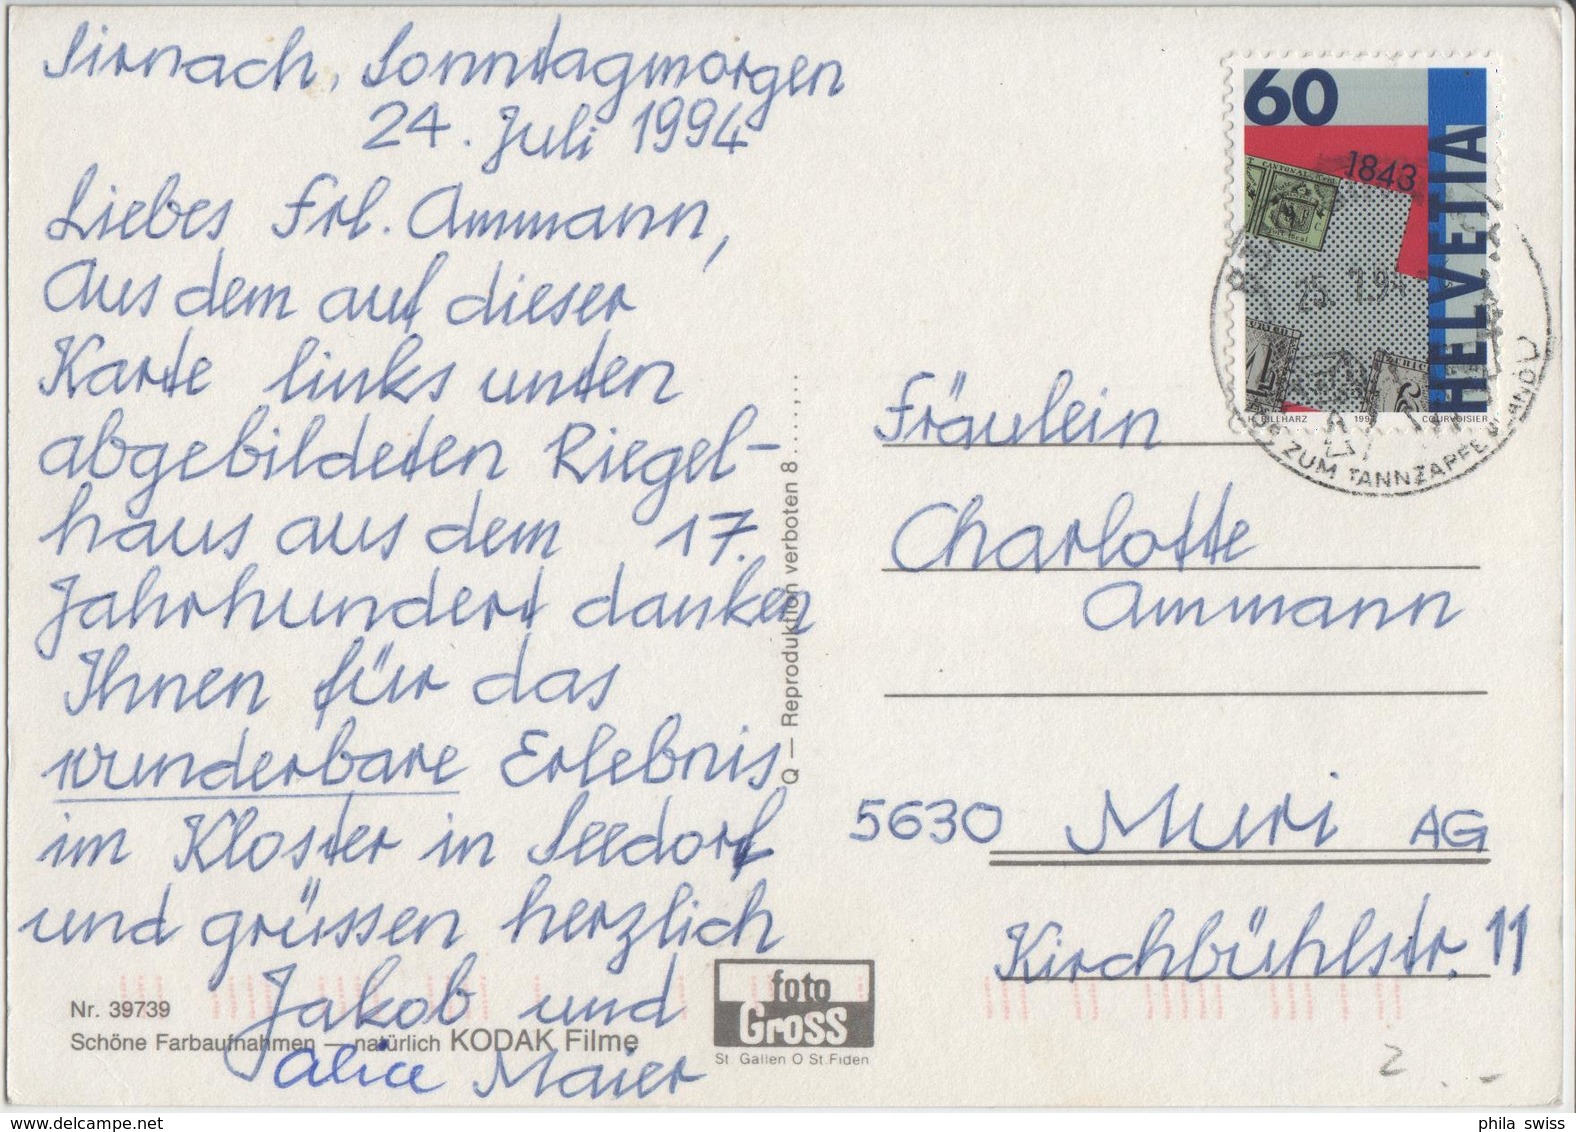 Sirnach, Sonntagmorgen
24. Juli 1994
Liebes Frl. Ammann,
Aus dem auf dieser
Karte links unten
abgebildeten Riegel-
haus aus dem 17.
Jahrhundert danken
Ihnen für das
wunderbare Erlebnis
im Kloster in Seedorf
und grüssen herzlich
Jakob und
Alice Maier
Nr. 39739
Schöne Farbaufnahmen — natürlich KODAK Filme
foto
Gross
St. Gallen O St. Fiden
Q — Reproduktion verboten 8.....,...
60
1843
HELVETIA
CANTONAL
H. BILLHARZ
COURVOISIER
25.
ZUM TANNZAPFENLAND
Fräulein
Charlotte
Ammann
5630 Muri AG
Kirchbühlstr. 11
2
www.delcampe.net
phila_swiss